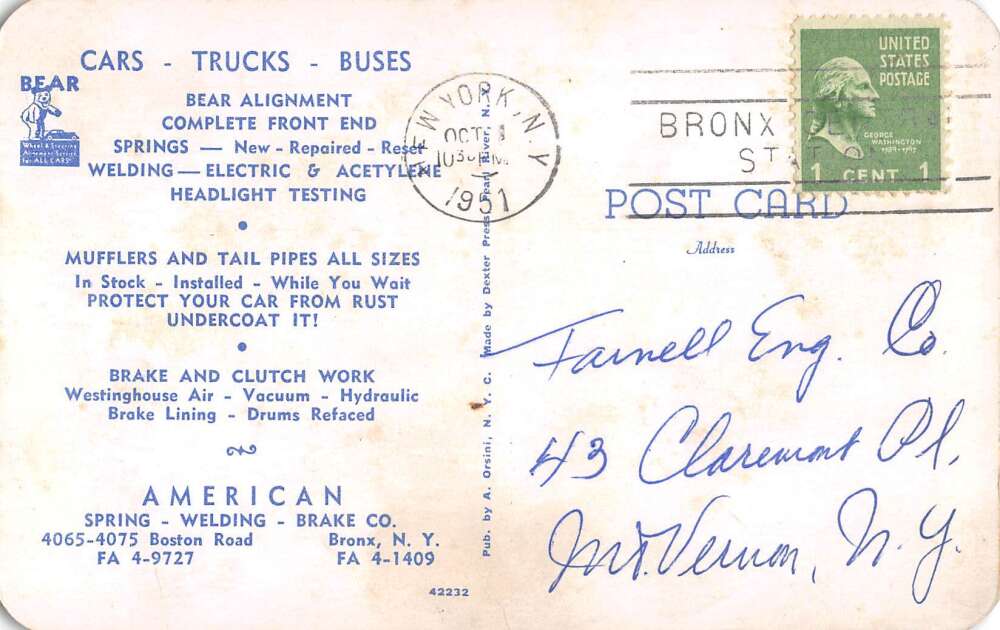 CARS - TRUCKS - BUSES
BEAR
Wheel & Steering
Alignment Service
for ALL CARS
BEAR ALIGNMENT
COMPLETE FRONT END
SPRINGS — New - Repaired - Reset
WELDING — ELECTRIC & ACETYLENE
HEADLIGHT TESTING
•
MUFFLERS AND TAIL PIPES ALL SIZES
In Stock - Installed - While You Wait
PROTECT YOUR CAR FROM RUST
UNDERCOAT IT!
•
BRAKE AND CLUTCH WORK
Westinghouse Air - Vacuum - Hydraulic
Brake Lining - Drums Refaced
AMERICAN
SPRING - WELDING - BRAKE CO.
4065-4075 Boston Road Bronx, N. Y.
FA 4-9727 FA 4-1409
42232
Pub. by A. Orsini, N. Y. C. Made by Dexter Press, Pearl River, N. Y.
NEW YORK, N.Y.
OCT
1030 PM
1951
BRONX
STATION
UNITED
STATES
POSTAGE
GEORGE
WASHINGTON
1789-1797
1 CENT 1
POST CARD
Address
Farnell Eng. Co.
43 Claremont Pl.
Mt. Vernon, N. Y.